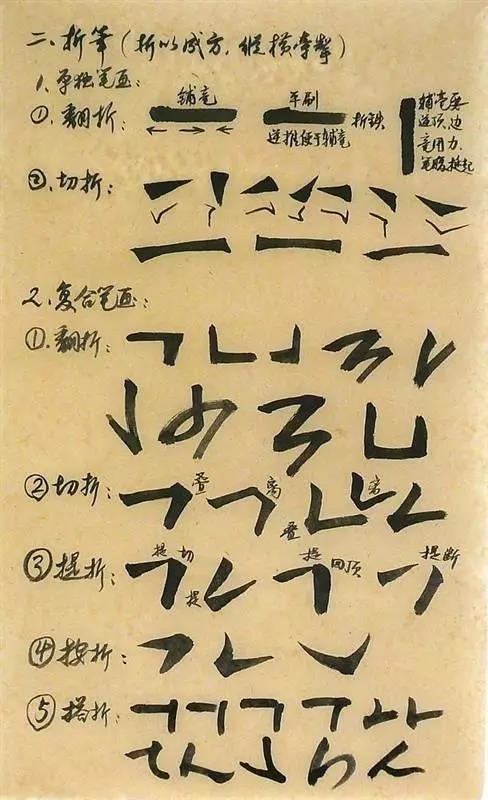 二、折笔(折以成方,纵横牵掣)
1.单独笔画:
①.翻折: 铺毫 平刷 折铁 逆推便于铺毫
铺毫要
逆顶,边
毫用力.
笔腹挺起
②.切折:
2.复合笔画:
①.翻折:
②切折: 叠 离 叠 离
③提折: 提 切 提 提 回顶 提断
④按折:
⑤搭折: